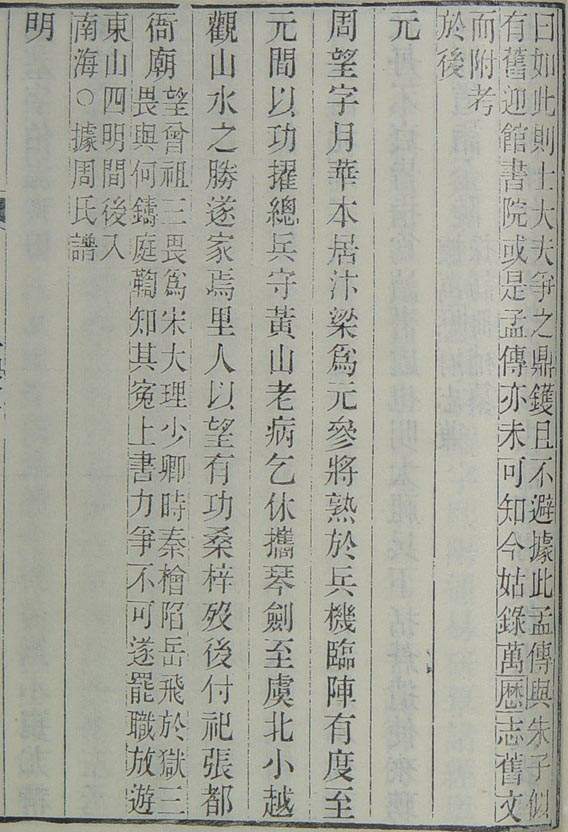 曰如此則士大夫爭之鼎鑊且不避據此孟傳與朱子似
有舊迎館書院或是孟傳亦未可知今姑錄萬厯志舊文
而附考
於後
元
周望字月華本居汴梁爲元參將熟於兵機臨陣有度至
元間以功擢總兵守黃山老病乞休攜琴劍至虞北小越
觀山水之勝遂家焉里人以望有功桑梓歿後付祀張都
衙廟望曾祖三畏爲宋大理少卿時秦檜陷岳飛於獄三
畏與何鑄庭鞫知其寃上書力爭不可遂罷職放遊
東山四明間後入
南海○據周氏譜
明